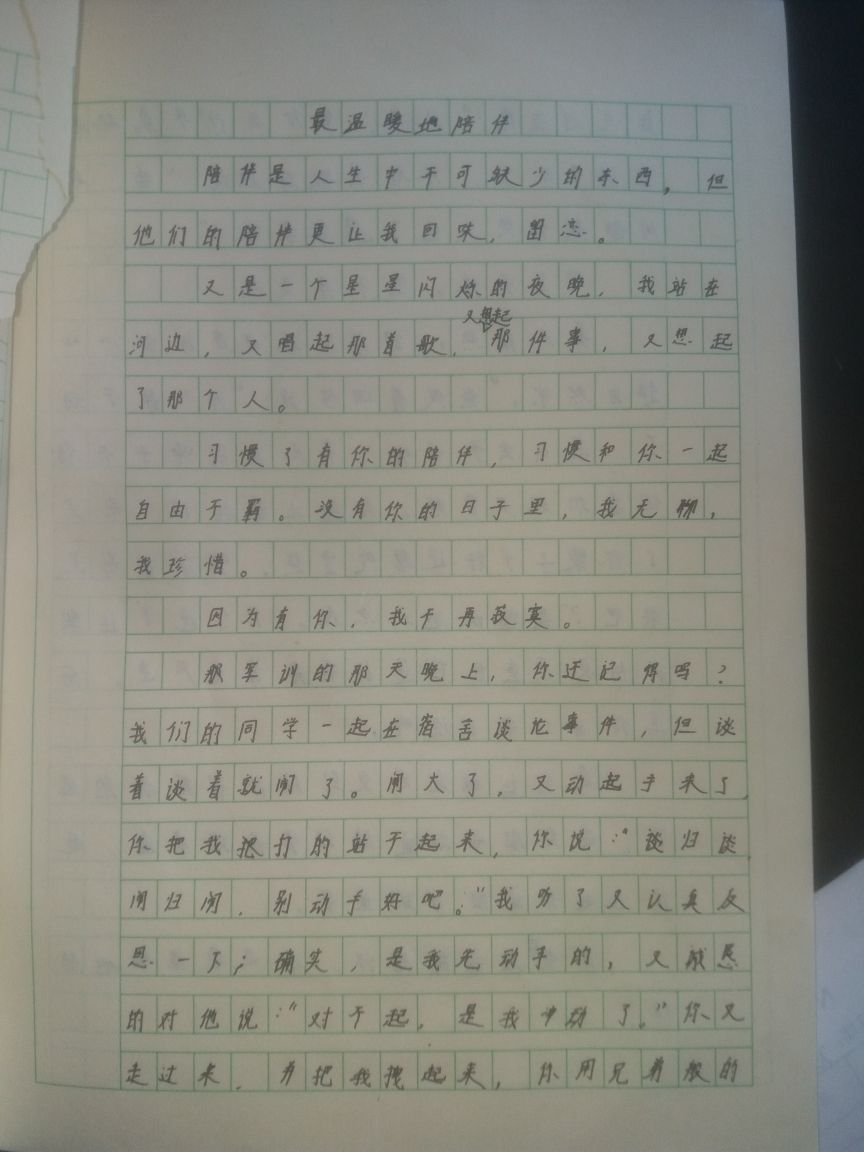 最温暖地陪伴
陪伴是人生中不可缺少的东西，但
他们的陪伴更让我回味，留恋。
又是一个星星闪烁的夜晚，我站在
又想起
河边，又唱起那首歌，那件事，又想起
了那个人。
习惯了有你的陪伴，习惯和你一起
自由于霸。没有你的日子里，我无聊，
我珍惜。
因为有你，我不再寂寞。
那军训的那天晚上，你还记得吗？
我们的同学一起在宿舍谈论事件，但谈
着谈着就闹了。闹大了，又动起手来了，
你把我打的站不起来，你说：“谈归谈
闹归闹，别动手好吧。”我听了又认真反
思一下；确实，是我先动手的，又诚恳
的对他说：“对不起，是我冲动了。”你又
走过来，并把我拽起来，你用兄弟般的